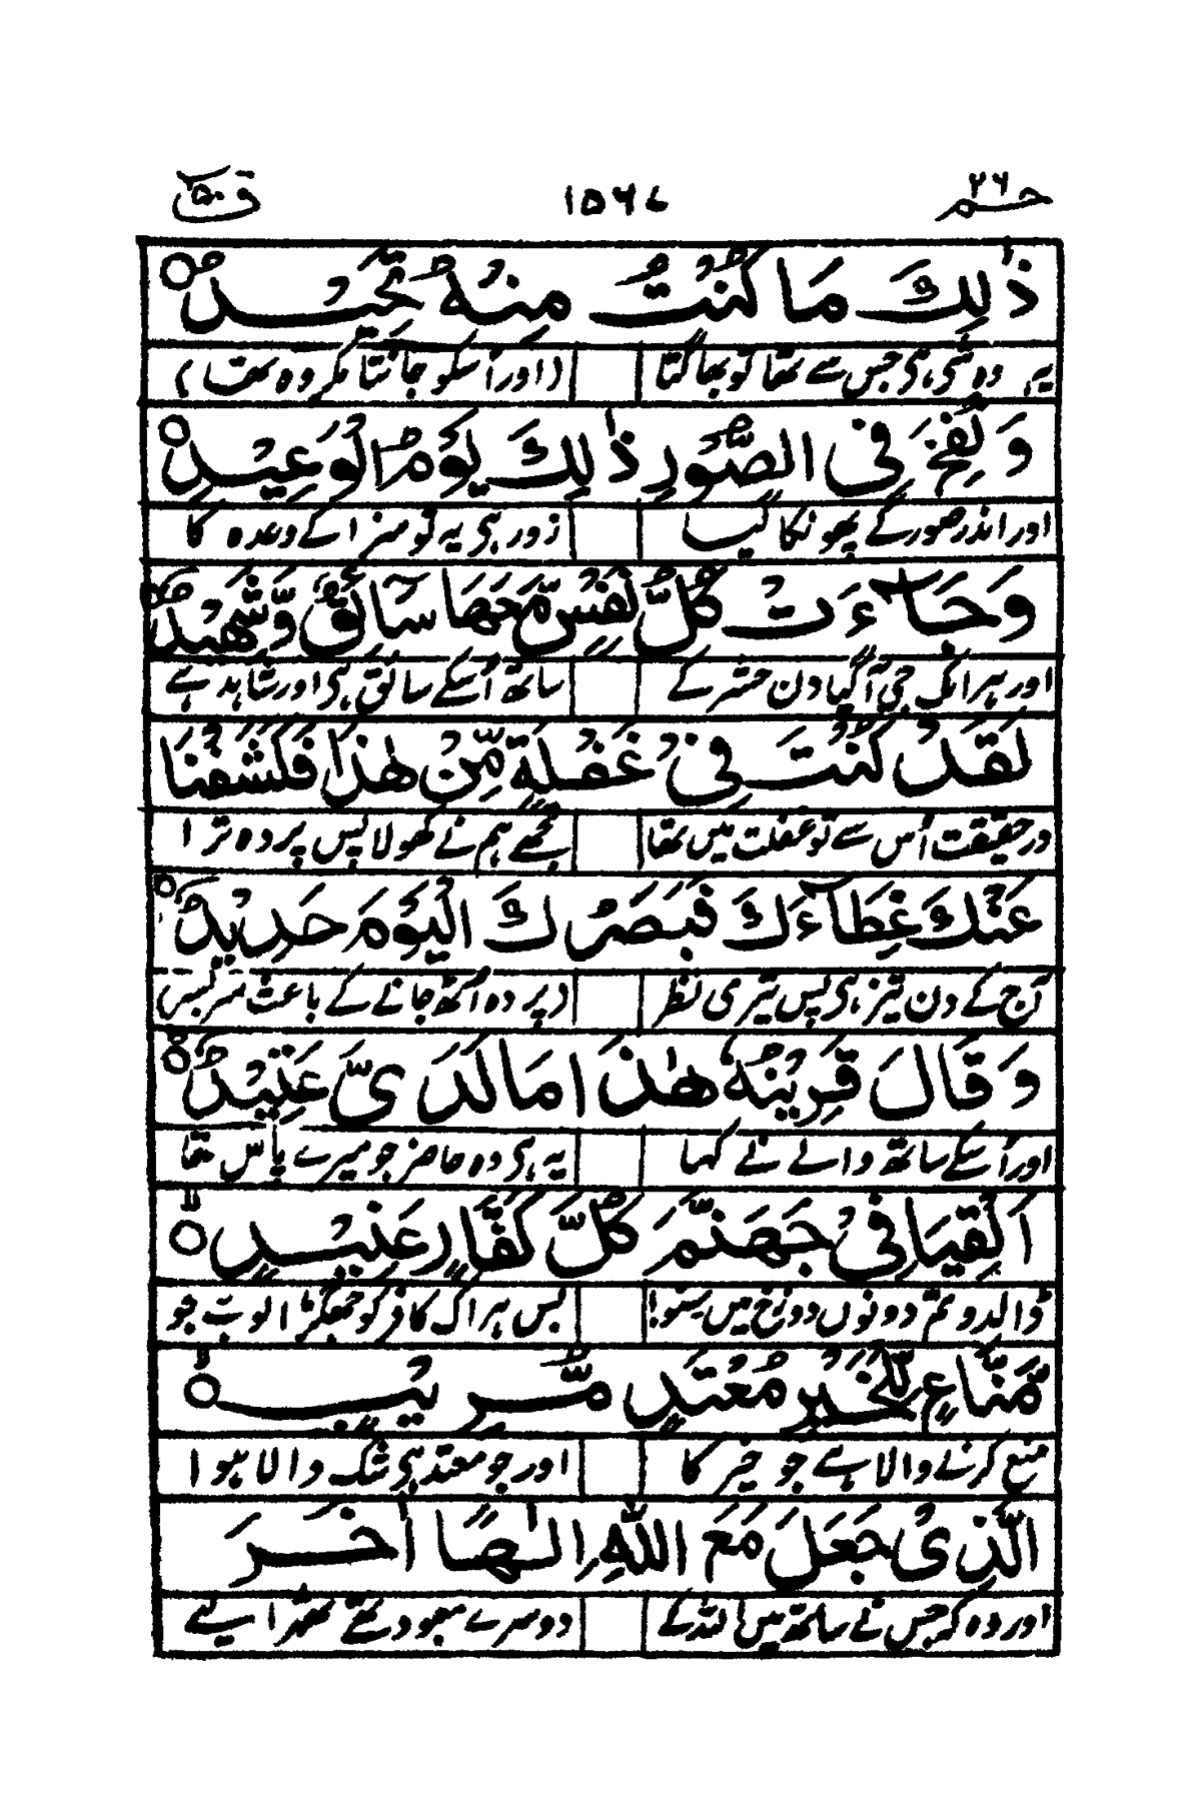 حٰم ٢٦ ١٥٦٧ ق ٥٠
ذٰلِكَ مَا كُنْتَ مِنْهُ تَحِيْدُ ○
یہ، وہ شی، ہی جس سے تھا تو بھاگتا (اور اُسکو جانتا مکروہ تھا)
وَ نُفِخَ فِی الصُّوْرِ ذٰلِكَ يَوْمُ الْوَعِيْدِ ○
اور اندر صور کے پھونکا گیا زور ہی یہ تو سزا کے وعدہ کا
وَ جَآءَتْ كُلُّ نَفْسٍ مَّعَهَا سَآئِقٌ وَّ شَهِيْدٌ ○
اور ہر ایک جی آ گیا دن حشر کے ساتھ اُسکے سائق ہی اور شاہد ہے
لَقَدْ كُنْتَ فِیْ غَفْلَةٍ مِّنْ هٰذَا فَكَشَفْنَا
در حقیقت اُس سے تو غفلت میں تھا تجھے ہم نے کھولا پس پردہ ترا
عَنْكَ غِطَآءَكَ فَبَصَرُكَ الْيَوْمَ حَدِيْدٌ ○
آج کے دن تیز، ہی پس تیری نظر (پردہ اُٹھ جانے کے باعث سر بسر)
وَ قَالَ قَرِيْنُهٗ هٰذَا مَا لَدَیَّ عَتِيْدٌ ○
اور اُسکے ساتھ والے نے کہا یہ ہی وہ حاضر جو میرے پاس تھا
اَلْقِيَا فِیْ جَهَنَّمَ كُلَّ كَفَّارٍ عَنِيْدٍ ○
ڈالدو تم دونوں دوزخ میں سنو! بس ہر اک کافر کو جھگڑالو ہے جو
مَّنَّاعٍ لِّلْخَيْرِ مُعْتَدٍ مُّرِيْبٍ ○
منع کرنے والا ہے جو خیر کا اور جو معتد ہی شک والا ہوا
الَّذِیْ جَعَلَ مَعَ اللّٰهِ اِلٰهًا اٰخَرَ
اور وہ کہ جس نے ساتھ میں اللہ کے دوسرے معبود تھے ٹھہرا لیے